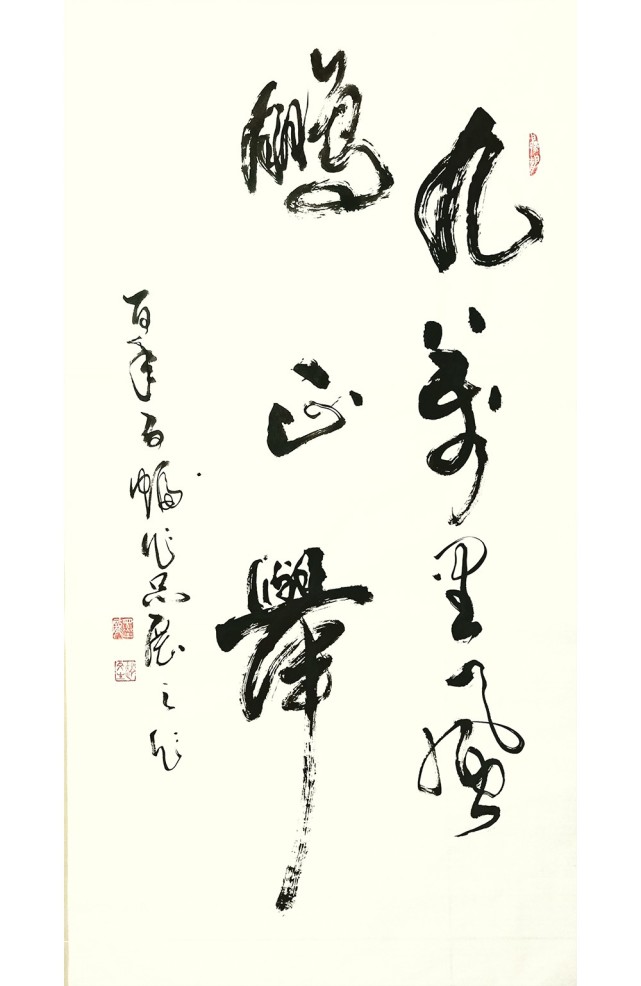 九萬里風
鵬正舉
百年百幅作品展之作